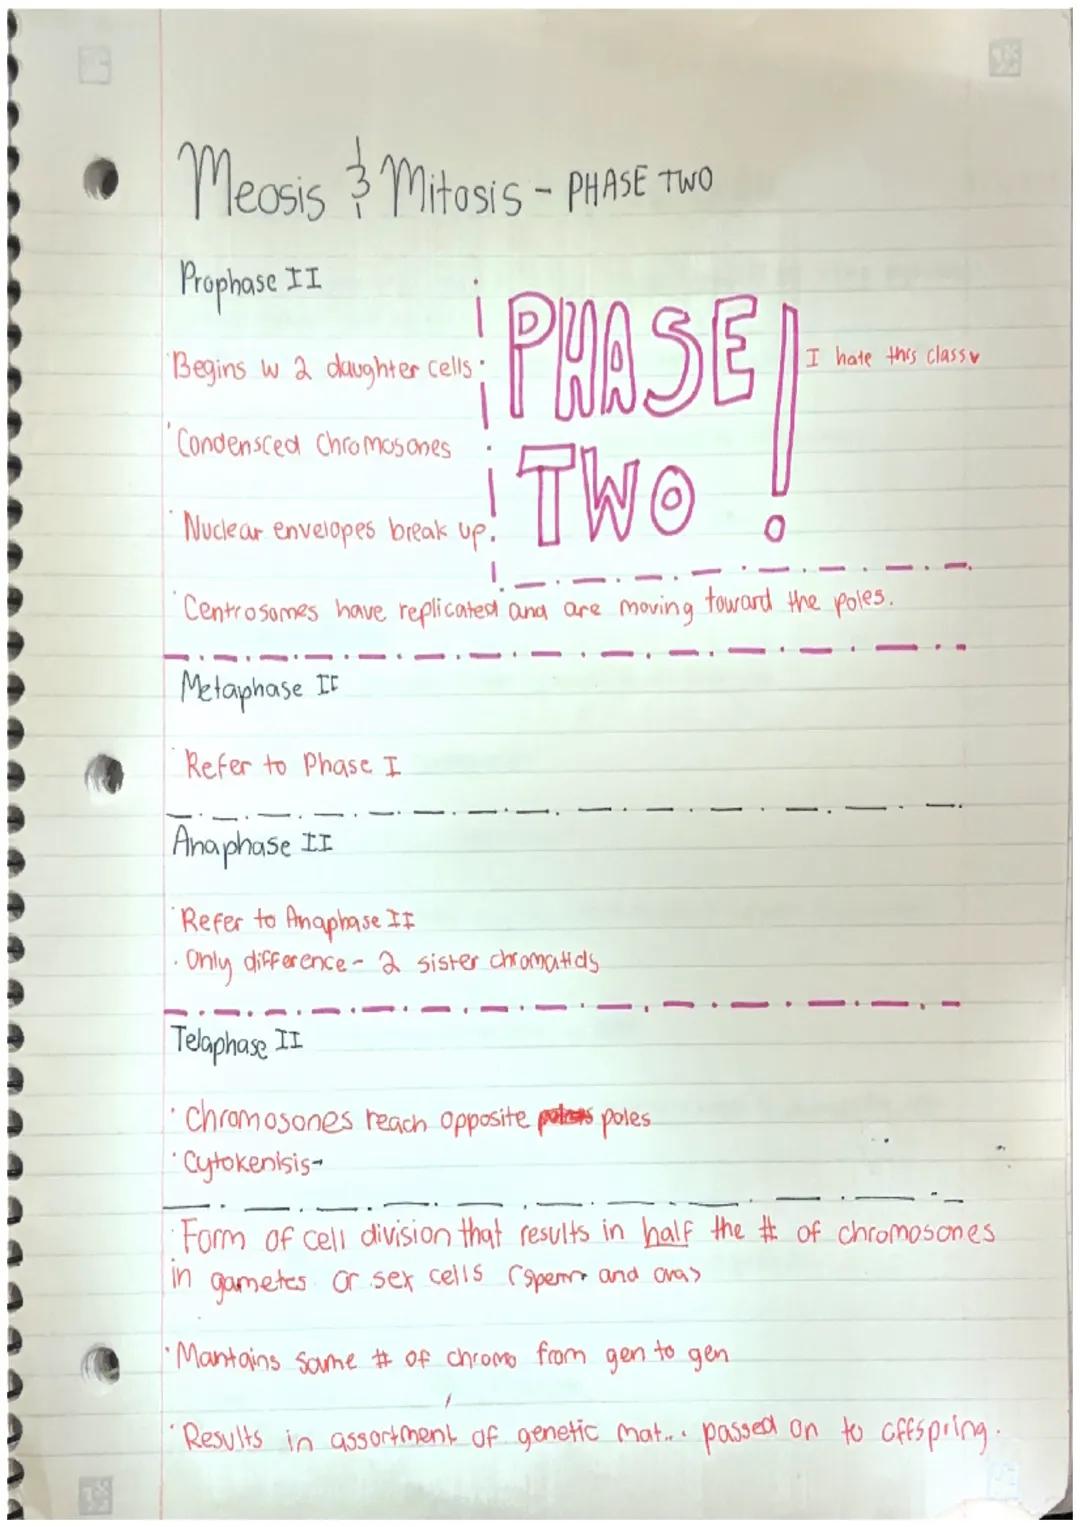 Meosis & Mitosis - PHASE TWO
Prophase II
PHASE TWO!
I hate this class
Begins w 2 daughter cells
Condensced Chromosones
Nuclear envelopes break up.
Centrosomes have replicated and are moving toward the poles.
Metaphase II
Refer to Phase I
Anaphase II
Refer to Anaphase II
Only difference - 2 sister chromatids
Telaphase II
Chromosones reach opposite poles
Cytokenisis-
Form of cell division that results in half the # of chromosones
in gametes or sex cells (sperm and ova)
Mantains same # of chromo from gen to gen
Results in assortment of genetic mat... passed on to offspring.